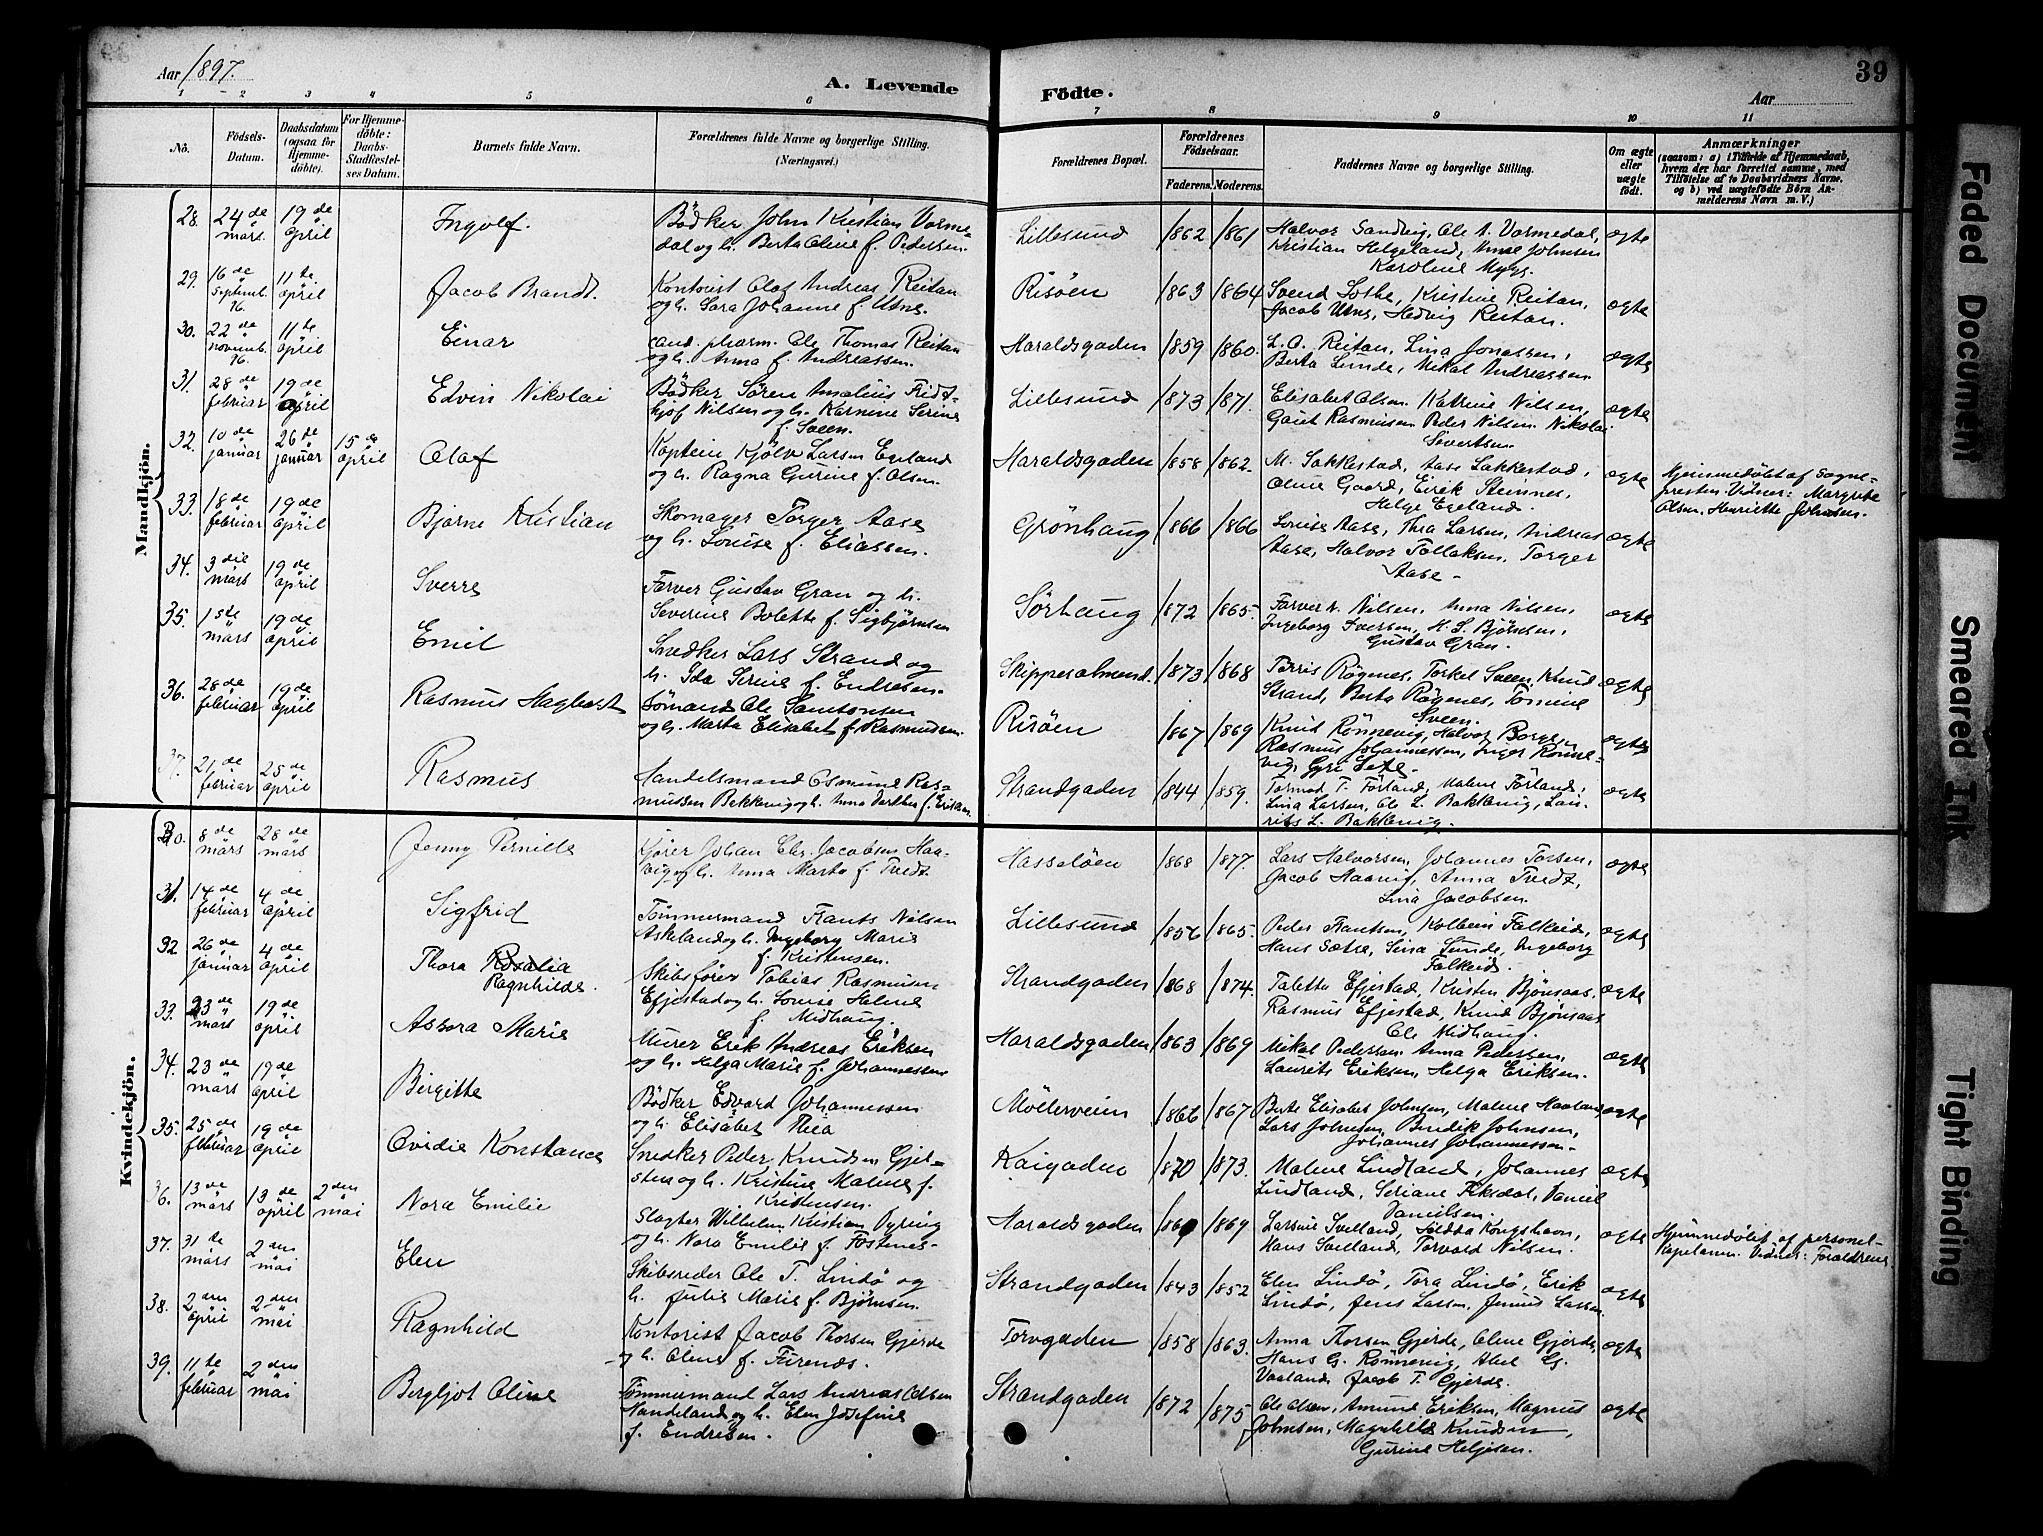 Aar 1897.
A. Levende Födte.
39
Aar
1 2 3 4 5 6 7 8 9 10 11
No.
Födsels-Datum.
Daabsdatum (ogsaa for Hjemme-döbte).
For Hjemme-döbte: Daabs-Stadfæstel-ses Datum.
Barnets fulde Navn.
Forældrenes fulde Navne og borgerlige Stilling. (Næringsvei.)
Forældrenes Bopæl.
Forældrenes Födselsaar.
Faderens. Moderens.
Faddernes Navne og borgerlige Stilling.
Om ægte eller uægte født.
Anmærkninger
(saasom: a) i Tilfælde af Hjemmedaab, hvem der har forrettet samme, med Tilföielse af to Daabsvidners Navne, og b) ved uægtefödte Börn An-melderens Navn m. V.)
Mandkjön.
28. 24de mars 19de april Ingolf. Bödker John Kristian Vorme-
dal og h. Berta Oline f. Pedersen. Lillesund 1862 1861 Halvor Sandvig, Ole A. Vormedal, ægte
Kristian Helgeland, Anne Johnsen
Karoline Mygs.
29. 16de Septemb. 96. 11te april Jacob Brandt. Kontorist Olaf Andreas Reitan
og h. Sara Johanne f. Utne. Risöen 1863 1864 Svend Lothe, Kristine Reitan, ægte
Jacob Utne, Hedvig Reitan.
30. 22de novemb. 96. 11te april Einar cand. pharm. Ole Thomas Reitan
og h. Anna f. Andreassen. Haraldsgaden 1859 1860. L. O. Reitan, Lina Jonassen, ægte
Berta Lunde, Mikal Andreassen.
31. 28de februar 19de april Edvin Nikolai Bödker Sören Amalius Fridt-
hjof Nilsen og h. Karnine Serine
f. Sveen. Lillesund 1873 1871. Elisabet Olsen. Katrine Nilsen, ægte
Gaut Rasmusen Peder Nilsen. Nikolai
Sivertsen.
32. 10de januar 26de januar 15de april Olaf Kaptein Kjölv Larsen Egeland
og h. Ragna Gurine f. Olsen. Haraldsgaden 1858 1862. M. Sakkestad, Aase Sakkestad, ægte
Oline Gaard, Eirik Steinnes,
Helge Egeland.
Hjemmedöbt af Sogne-
presten. Vidner: Margrete
Olsen. Henriette Johnsen.
33. 18de februar 19de april Bjarne Kristian Skomager Torger Aase
og h. Louise f. Eliassen. Grönhaug 1866 1866 Louise Aase, Thea Larsen, Andreas ægte
Aase, Halvor Tollaksen, Torger
Aase -
34. 3die mars 19de april Sverre Farver Gustav Gran og h.
Severine Bolette f. Sigbjörnsen Sörhaug 1872 1865. Farver N. Nilsen, Anna Nilsen, ægte
Ingeborg Iversen, H. S. Björnsen,
Gustav Gran.
35. 1ste mars 19de april Emil Snedker Lars Strand og
h. Ida Serine f. Endresen. Skippesalmend. 1873 1868 Torris Rögenes, Torkel Sveen, Knud ægte
Strand, Berta Rögenes, Tomine
Sveen.
36. 28de februar 19de april Rasmus Hagbart Sömand Ole Samsonsen
og h. Marta Elisabet f. Rasmussen. Risöen 1867 1869 Knud Rönnevig, Halvor Borge, ægte
Rasmus Johannessen, Inger Rönne-
vig, Gyri Sexe.
37. 21de februar 25de april Rasmus Handelsmand Osmund Ras-
mussen Bakkevig og h. Anna f. Eriksen. Strandgaden 1844 1859. Tormod T. Förland, Malene Förland, ægte
Lina Larsen, Ole L. Bakkevig, Lau-
rits L. Bakkevig.
Kvindekjön.
30. 8de mars 28de mars Jenny Pernille Kjörer Johan Chr. Jacobsen Haa-
vig og h. Anna Marta f. Tvedt Hasselöen 1868 1877. Lars Halvorsen, Johannes Torsen, ægte
Jacob Haavig, Anna Tvedt,
Lina Jacobsen.
31. 14de februar 4de april Sigfrid Tömmermand Frants Nilsen
Askeland og h. Ingeborg Marie
f. Kristensen. Lillesund 1856 1865. Peder Frantsen, Kolbein Falkeid, ægte
Hans Sætre, Sina Lunde, Ingeborg
Falkeid.
32 26de januar 4de april Thora Rosalia
Ragnhilde. Skibsförer Tobias Rasmusen
Efjestad og h. Louise Helene
f. Midhaug. Strandgaden 1868 1874. Taletta Efjestad, Kristen Bjönsaas, ægte
Rasmus Efjestad, Knud Bjönsaas
Ole Midhaug.
33. 23de mars 19de april Assora Marie Murer Erik Andreas Eriksen
og h. Helga Marie f. Johannessen Haraldsgaden 1863 1869 Mikal Pedersen Anna Pedersen, ægte
Laurits Eriksen, Helga Eriksen.
34. 23de mars 19de april Birgitte Bödker Edvard Johannessen
og h. Elisabet Thea Möllerveien 1866 1867 Berte Elisabet Johnsen, Malene Haaland ægte
Lars Johnsen, Bendik Johnsen,
Johannes Johannessen -
35. 25de februar 19de april Ovidie Konstance Snedker Peder Knudsen Gjel-
sten og h. Kristine Malene f.
Kristensen. Kaigaden 1870 1873. Malene Lindland, Johannes ægte
Lindland, Seriane Fiksdal, Daniel
Danielsen.
36. 13de mars 13de april 2den mai Nora Emilie Slagter Wilhelm Kristian Pyring
og h. Nora Emilie f. Fosenes - Haraldsgaden 1869 Larsine Svelland, Kongshavn, ægte
Hans Svelland, Torvald Nilsen.
Hjemmedöbt af personel-
kapelanen. Vidner: Forældrene.
37. 31te mars 2den mai Elen Skibsreder Ole T. Lindö og
h. Julie Marie f. Björnsen. Strandgaden 1843 1852 Elen Lindö, Tora Lindö, Erik ægte
Lindö, Jens Larsen, Jenius Larsen.
38. 2den april 2den mai Ragnhild Kontorist Jacob Thorsen Gjerde
og h. Oline f. Furenes. Torvgaden 1858 1863. Anna Thorsen Gjerde, Oline Gjerde, ægte
Hans G. Rönnevig, Abel G.
Vaaland, Jacob T. Gjerde.
39. 11te februar 2den mai Bergljot Oline Tömmermand Lars Andreas Olsen
Nandeland og h. Elen Josefine
f. Endresen. Strandgaden 1872 1875 Ole Olsen, Amund Eriksen, Magnus ægte
Johnsen, Magnhilde Knudsen,
Gurine Heljesen.
Faded Document
Smeared Ink
Tight Binding